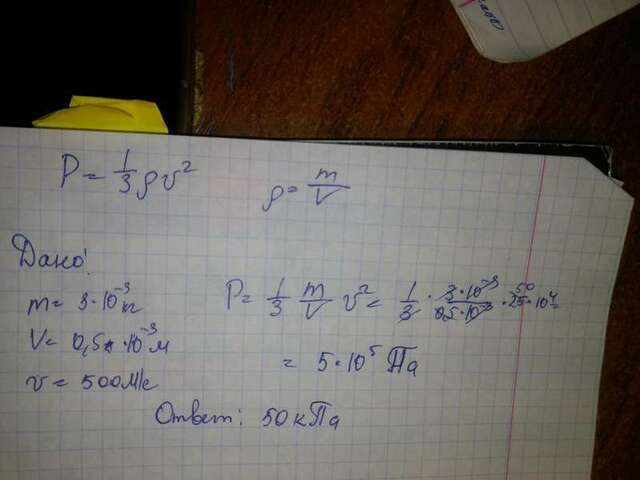 P = 1/3 ρv² ρ = m/V
Дано:
m = 3·10⁻³ кг
V = 0,5·10⁻³ м
v = 500 м/с
P = 1/3 m/V v² = 1/3 · 3·10⁻³/0,5·10⁻³ · 50 25·10⁴ =
= 5·10⁵ Па
Ответ: 50 кПа